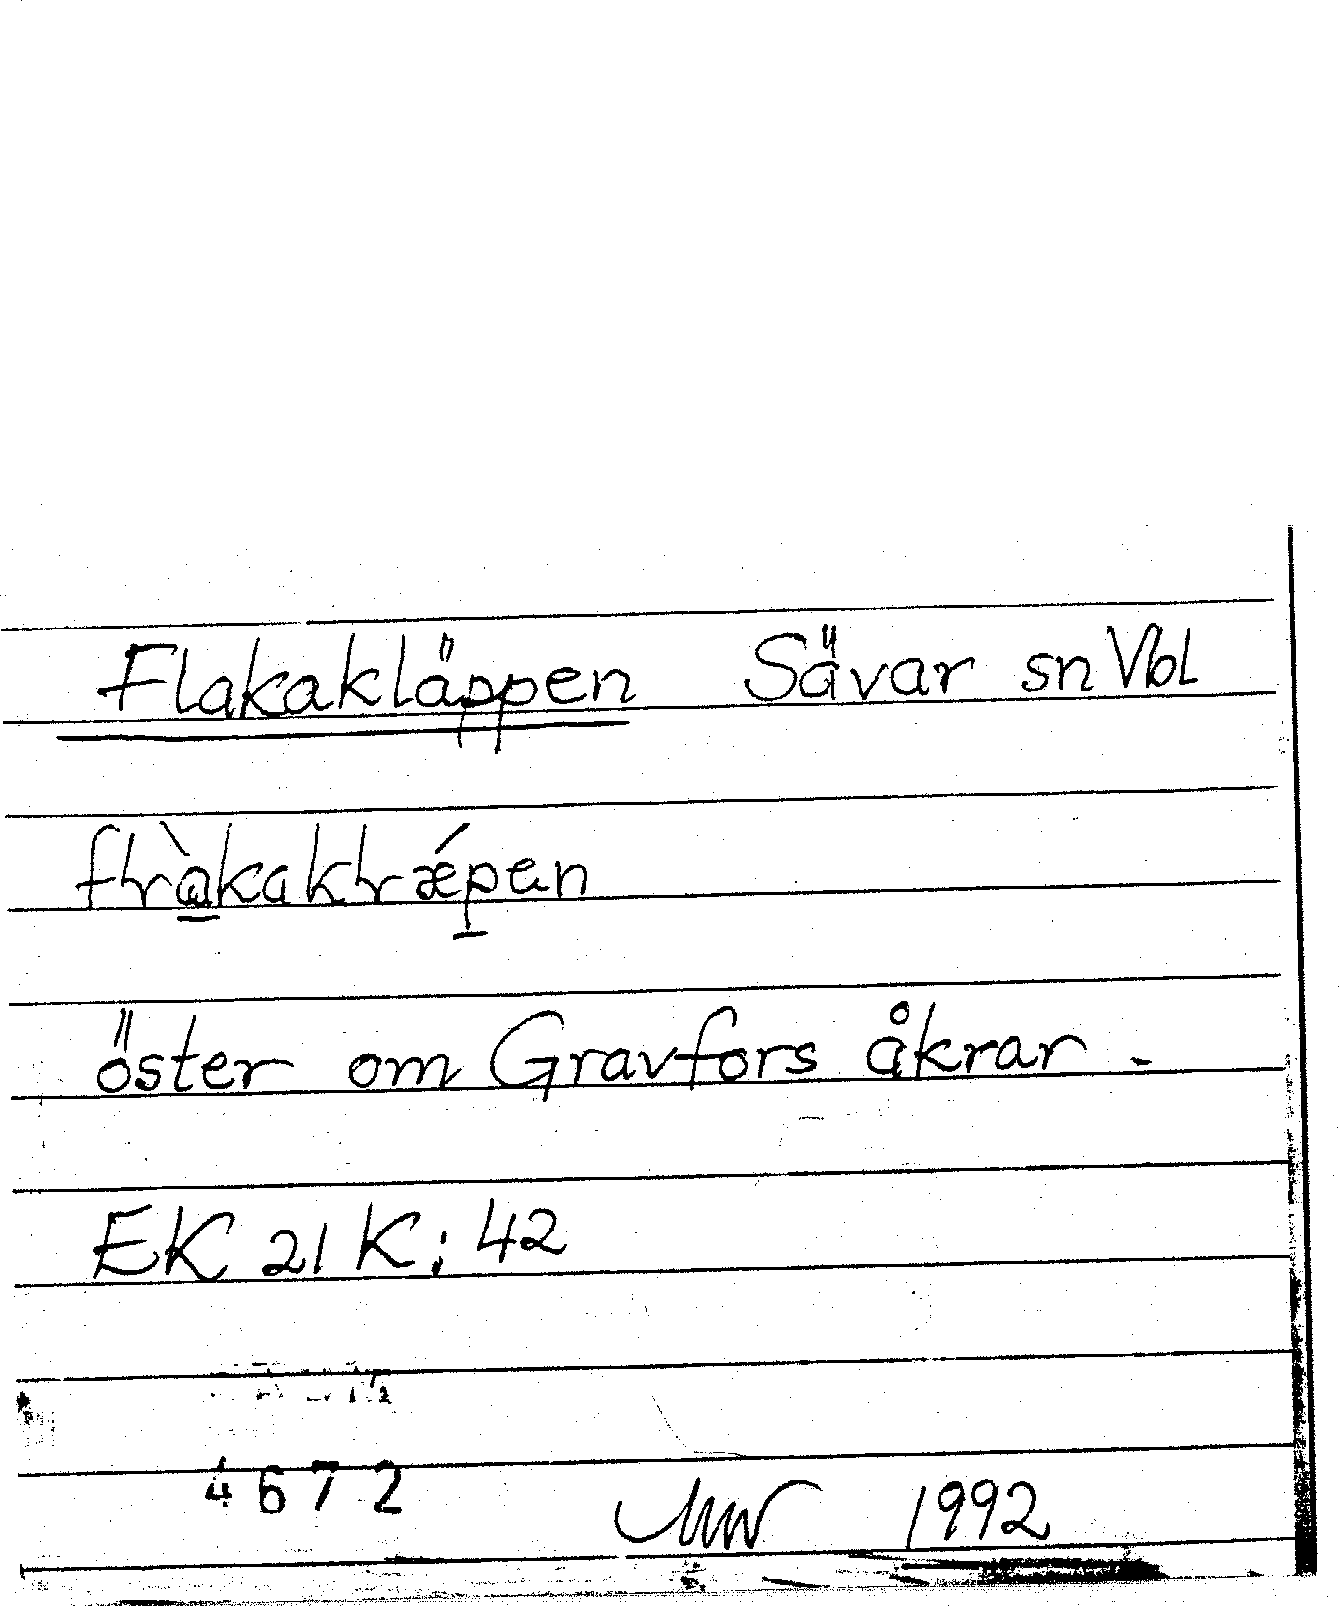 Flakakläppen Sävar sn Vbl
öster om Gravfors åkrar.
EK 21 K: 42
4672
1992